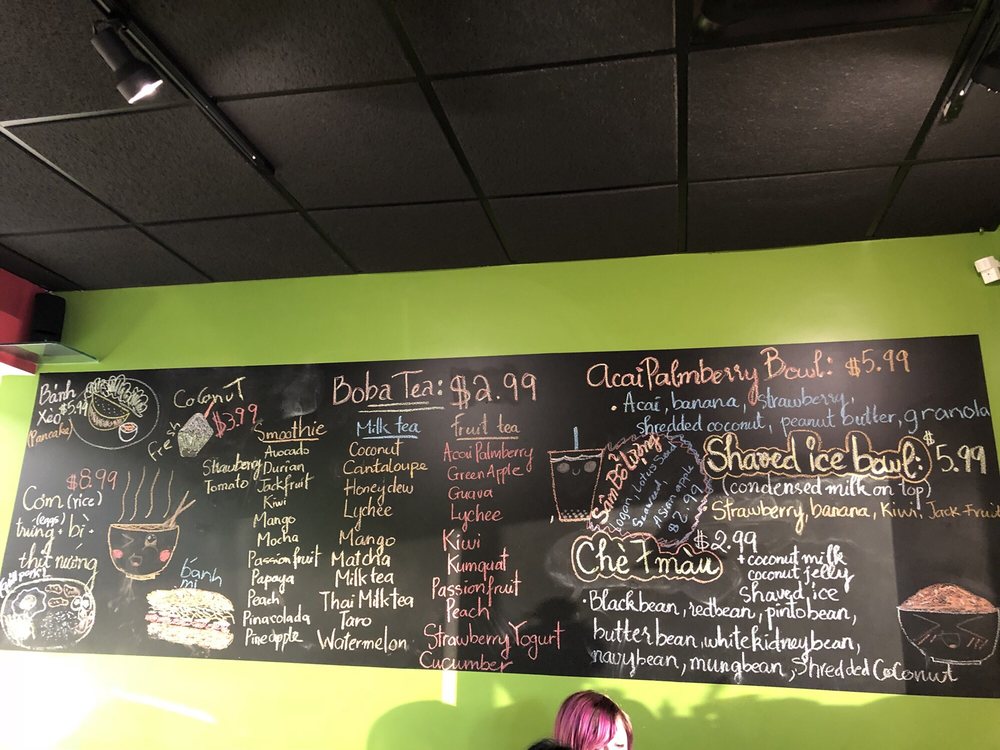 Bánh
Xèo $5.99
(Pancake)
Coconut
$3.99
Fresh
$8.99
Cơm (rice)
(eggs)
trứng + bì +
thịt nướng
Grill pork
bánh
mì
Boba Tea: $2.99
Smoothie
Avocado
Strawberry Durian
Tomato Jackfruit
Kiwi
Mango
Mocha
Passionfruit
Papaya
Peach
Pinacolada
Pineapple
Milk tea
Coconut
Cantaloupe
Honeydew
Lychee
Mango
Matcha
Milk tea
Thai Milk tea
Taro
Watermelon
fruit tea
Acai Palmberry
Green Apple
Guava
Lychee
Kiwi
Kumquat
Passionfruit
Peach
Strawberry Yogurt
Cucumber
Acai Palmberry Bowl: $5.99
• Acai, banana, strawberry,
shredded coconut, peanut butter, granola
Sâm Bổ Lượng
Logan, Lotus Seed
Seaweed,
Asian apple
$2.99
Shaved ice bowl: $5.99
(condensed milk on top)
Strawberry, banana, Kiwi, Jack-Fruit
Chè 7 màu $2.99
+ coconut milk
coconut jelly
shaved ice
• Black bean, red bean, pinto bean,
butter bean, white kidney bean,
navy bean, mung bean, Shredded Coconut